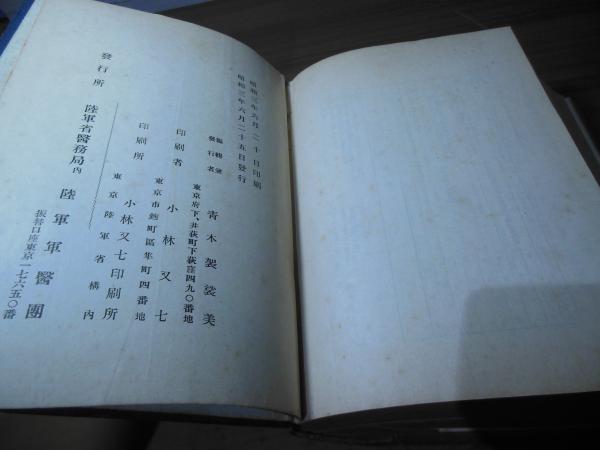 昭和三年六月二十日印刷
昭和三年六月二十五日發行
編輯兼
發行者
青木袈裟美
東京府下、井荻町下荻窪四九〇番地
印刷者
小林又七
東京市麹町區隼町四番地
印刷所
小林又七印刷所
東京陸軍省構内
發行所
陸軍省醫務局内
陸軍軍醫團
振替口座東京一七六五〇番